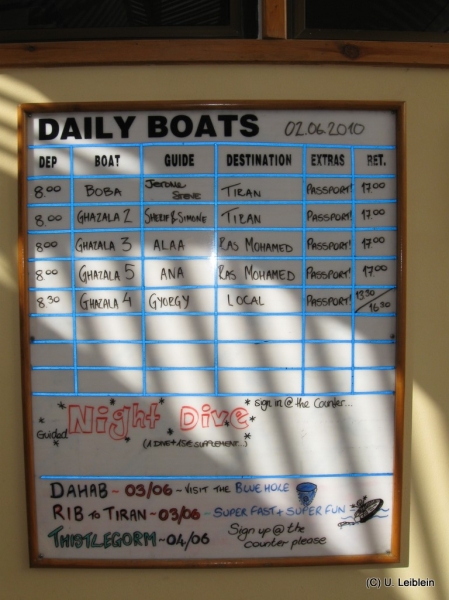 DAILY BOATS 02.06.2010
DEP BOAT GUIDE DESTINATION EXTRAS RET.
8.00 BOBA Jerome Steve TIRAN PASSPORT! 17.00
8.00 GHAZALA 2 SHERIF & SIMONE TIRAN PASSPORT! 17.00
8.00 GHAZALA 3 ALAA RAS MOHAMED PASSPORT! 17.00
8.00 GHAZALA 5 ANA RAS MOHAMED PASSPORT! 17.00
8.30 GHAZALA 4 GYORGY LOCAL PASSPORT! 13.30 / 16.30
Guided Night Dive * sign in @ the Counter...
(1 DIVE + 15€ SUPPLEMENT...)
DAHAB ~ 03/06 ~ VISIT THE BLUE HOLE
RIB to TIRAN ~ 03/06 ~ SUPER FAST + SUPER FUN
THISTLEGORM ~ 04/06 Sign up @ the
counter please
(C) U. Leiblein